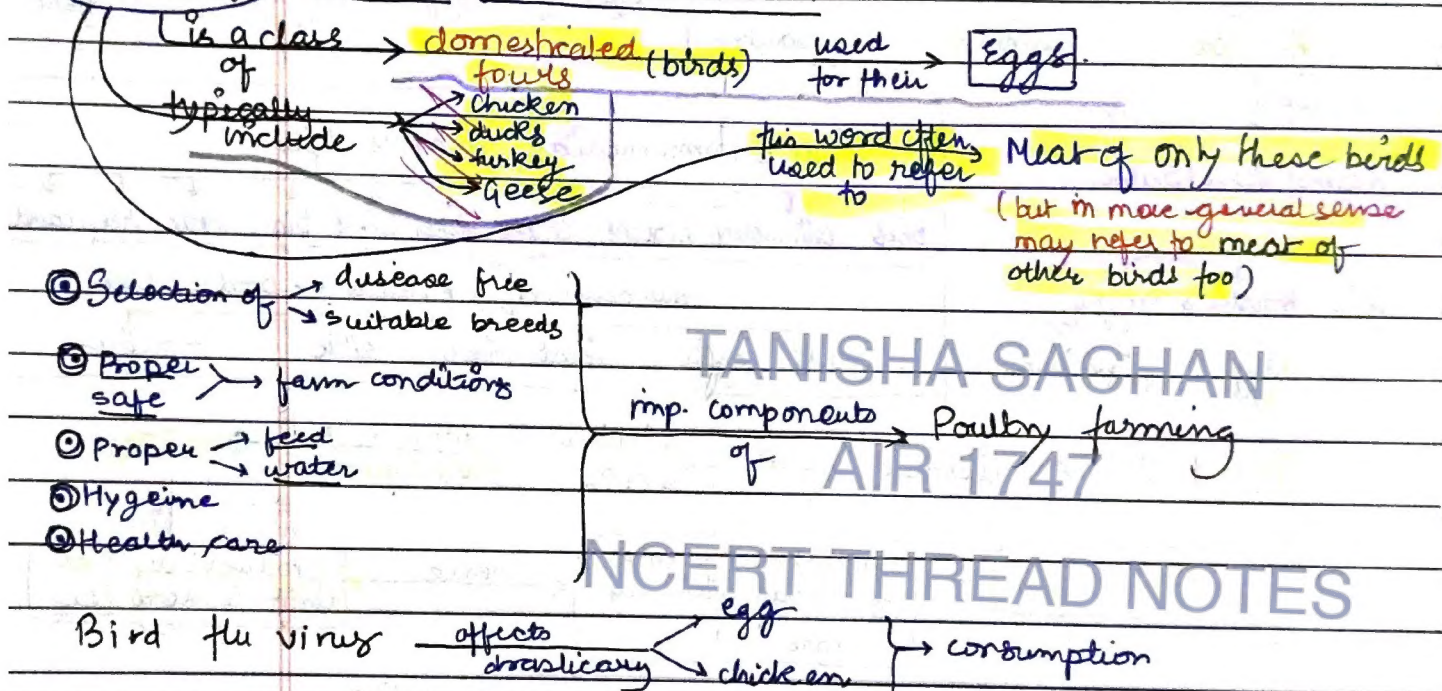 is a class of → domesticated fowls (birds) used for their → Eggs.
typically include → chicken
→ ducks
→ turkey
→ Geese
this word often used to refer to → Meat of only these birds
(but in more general sense
may refer to meat of
other birds too)
Selection of → disease free
→ suitable breeds
Proper
safe → farm conditions
Proper → feed
→ water
Hygeine
Health care
imp. components of → Poultry farming
TANISHA SACHAN
AIR 1747
NCERT THREAD NOTES
Bird flu virus affects drastically → egg
→ chicken
→ consumption